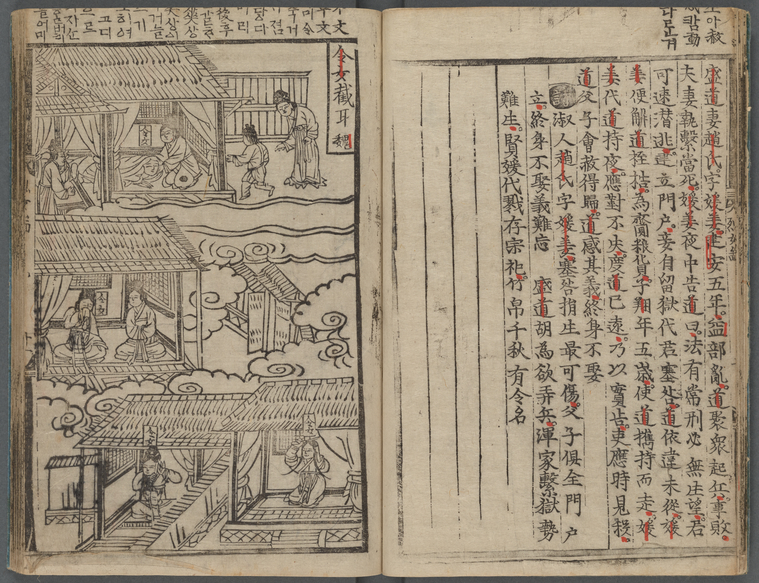 盛道妻趙氏字媛姜建安五年益部亂道聚衆起兵事敗
夫妻執繫當死媛姜夜中告道曰法有常刑必無生望君
可速潛逃建立門戶妾自留獄代君塞咎道依違未從媛
姜便解道桎梏爲齎粮貨子翔年五歲使道擕持而走媛
姜代道持夜應對不失度道已遠乃以實告吏應時見殺
道父子會赦得歸道感其義終身不娶
淑人趙氏字媛姜塞咎捐生最可傷父子俱全門戶
立終身不娶義難忘 盛道胡爲欲弄兵渾家繫獄勢
難生賢媛代戮存宗祀竹帛千秋有令名
令女截耳 魏
令女
令女
令女
令女